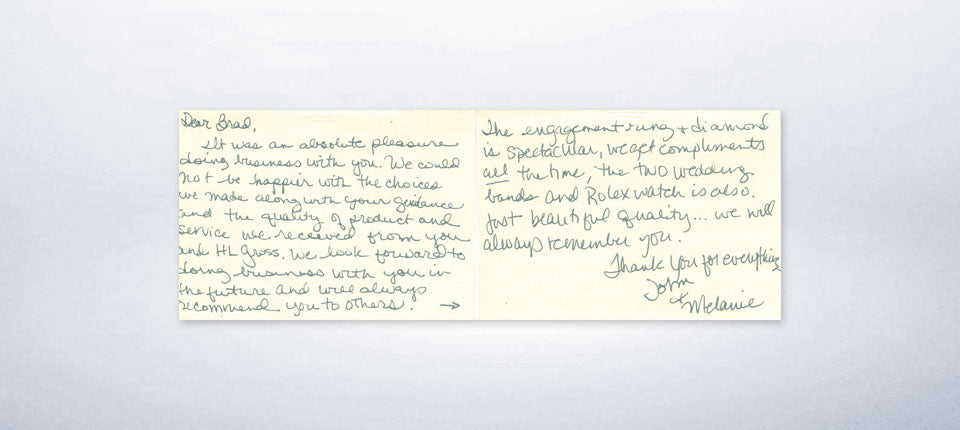 Dear Brad,
It was an absolute pleasure
doing business with you. We could
not be happier with the choices
we made along with your guidance
and the quality of product and
service we received from you
and HL Gross. We look forward to
doing business with you in
the future and will always
recommend you to others. →
The engagement ring + diamond
is spectacular, we get compliments
all the time, the two wedding
bands and Rolex watch is also
just beautiful quality... we will
always remember you.
Thank you for everything
John
+ Melanie